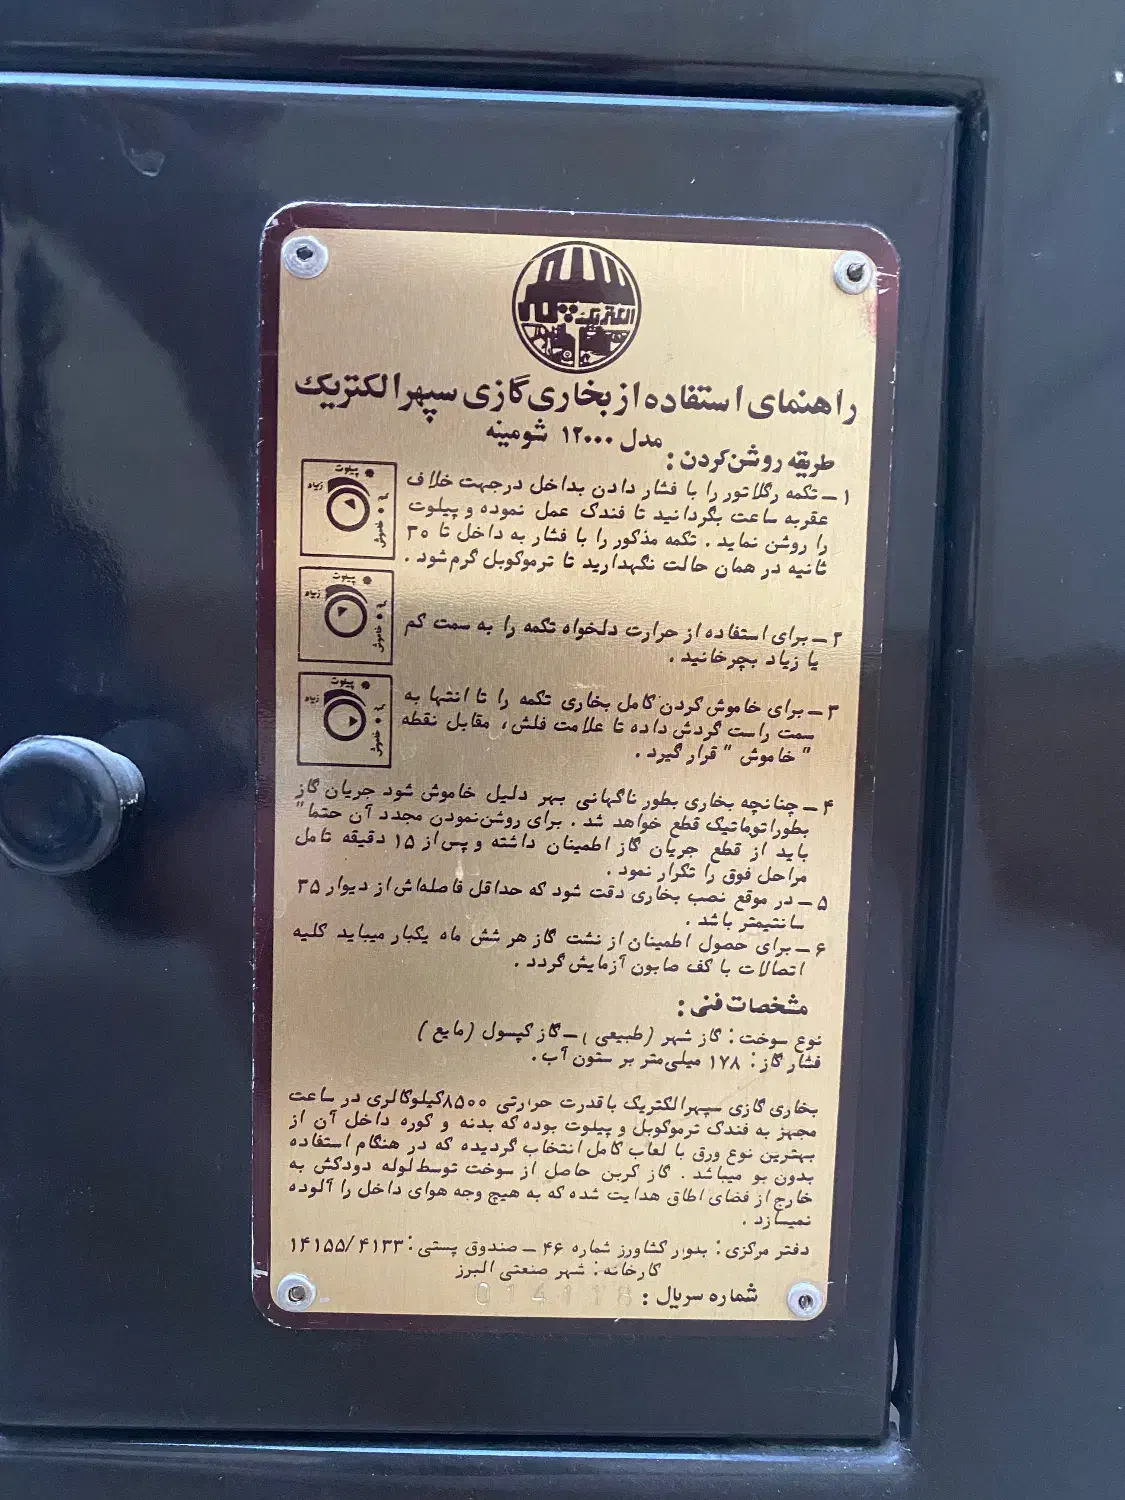 سپهر
الکتریک
راهنمای استفاده از بخاری گازی سپهر الکتریک
مدل ۱۲۰۰۰ شومینه
طریقه روشن کردن :
۱ – تکمه رگلاتور را با فشار دادن بداخل درجهت خلاف
عقربه ساعت بگردانید تا فندک عمل نموده و پیلوت
را روشن نماید . تکمه مذکور را با فشار به داخل تا ۳۰
ثانیه در همان حالت نگهدارید تا ترموکوبل گرم شود .
پیلوت
زیاد
کم
خاموش
۲ – برای استفاده از حرارت دلخواه تکمه را به سمت کم
یا زیاد بچرخانید .
پیلوت
زیاد
کم
خاموش
۳ – برای خاموش کردن کامل بخاری تکمه را تا انتها به
سمت راست گردش داده تا علامت فلش، مقابل نقطه
" خاموش " قرار گیرد .
پیلوت
زیاد
کم
خاموش
۴ – چنانچه بخاری بطور ناگهانی بهر دلیل خاموش شود جریان گاز
بطور اتوماتیک قطع خواهد شد . برای روشن نمودن مجدد آن حتما"
باید از قطع جریان گاز اطمینان داشته و پس از ۱۵ دقیقه تامل
مراحل فوق را تکرار نمود .
۵ – در موقع نصب بخاری دقت شود که حداقل فاصله‌اش از دیوار ۳۵
سانتیمتر باشد .
۶ – برای حصول اطمینان از نشت گاز هر شش ماه یکبار میباید کلیه
اتصالات با کف صابون آزمایش گردد .
مشخصات فنی :
نوع سوخت : گاز شهر (طبیعی) – گاز کپسول (مایع)
فشار گاز : ۱۷۸ میلی‌متر بر ستون آب .
بخاری گازی سپهر الکتریک با قدرت حرارتی ۸۵۰۰ کیلوکالری در ساعت
مجهز به فندک ترموکوبل و پیلوت بوده که بدنه و کوره داخل آن از
بهترین نوع ورق با لعاب کامل انتخاب گردیده که در هنگام استفاده
بدون بو میباشد . گاز کربن حاصل از سوخت توسط لوله دودکش به
خارج از فضای اطاق هدایت شده که به هیچ وجه هوای داخل را آلوده
نمیسازد .
دفتر مرکزی : بلوار کشاورز شماره ۴۶ – صندوق پستی : ۱۴۱۵۵/۴۱۳۳
کارخانه : شهر صنعتی البرز
شماره سریال : 014118